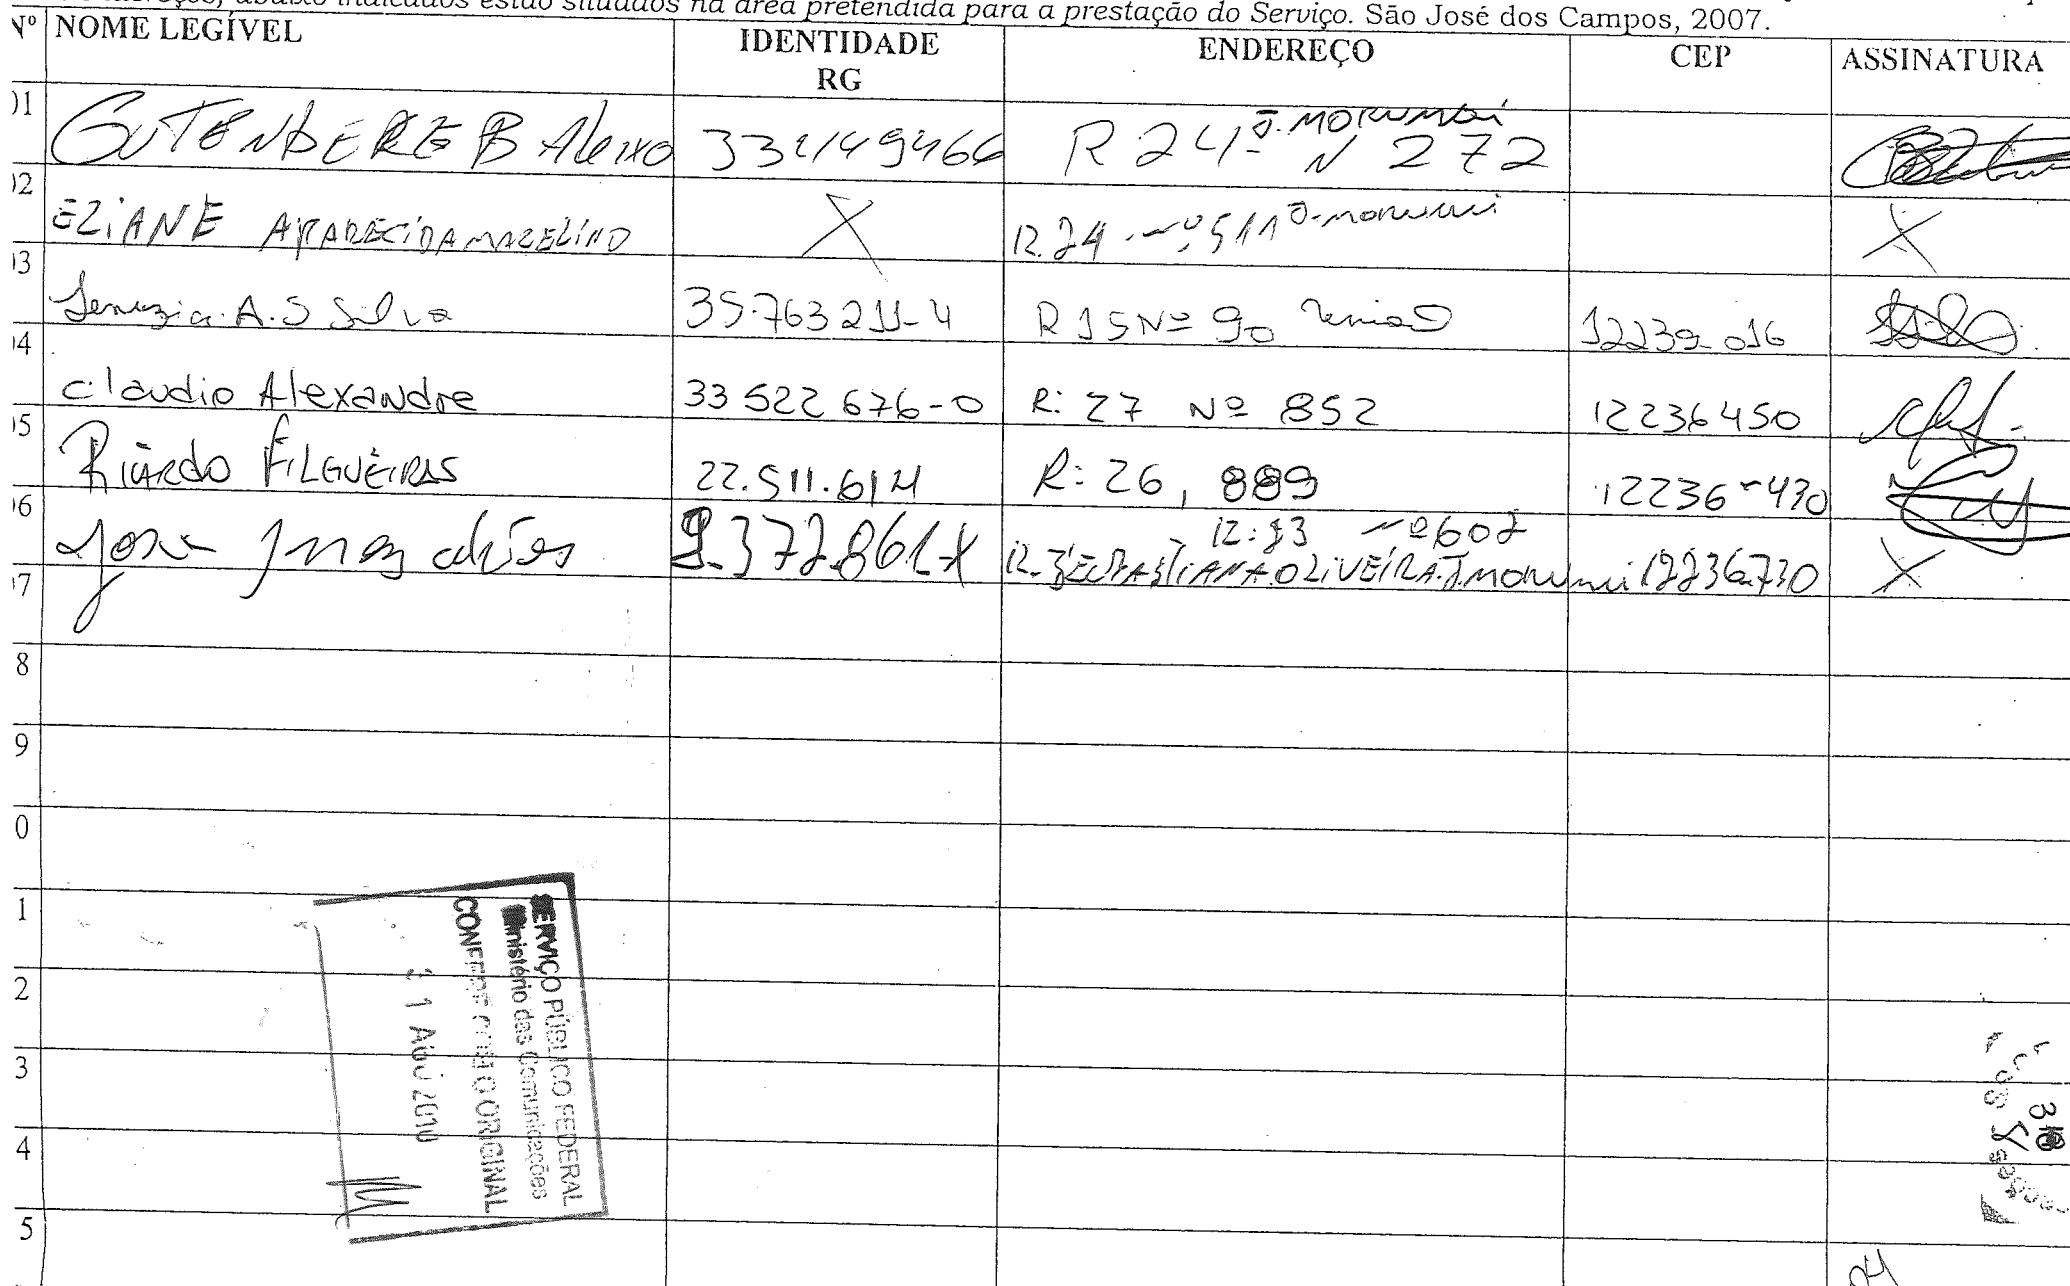 abaixo indicados estão situados na área pretendida para a prestação do Serviço. São José dos Campos, 2007.
Nº NOME LEGÍVEL IDENTIDADE RG ENDEREÇO CEP ASSINATURA
01 Aleixo R 24 J. MORUMBI N 272
02 ELIANE APARECIDA MARCELINO X R. 24 nº 511 J. morumbi X
03 A. S Silva 35.763211-4 R 15 Nº 90 12239-016
04 Claudio Alexandre 33 522 676-0 R: 27 Nº 852 12236450
05 Ricardo FILGUEIRAS 22.511.614 R: 26, 889 12236-430
06 nº 602
372.861-X OLIVEIRA J. morumbi 12236730 X
07
8
9
0
1
2
3
4
5
SERVIÇO PÚBLICO FEDERAL
Ministério das Comunicações
CONFERE COM O ORIGINAL